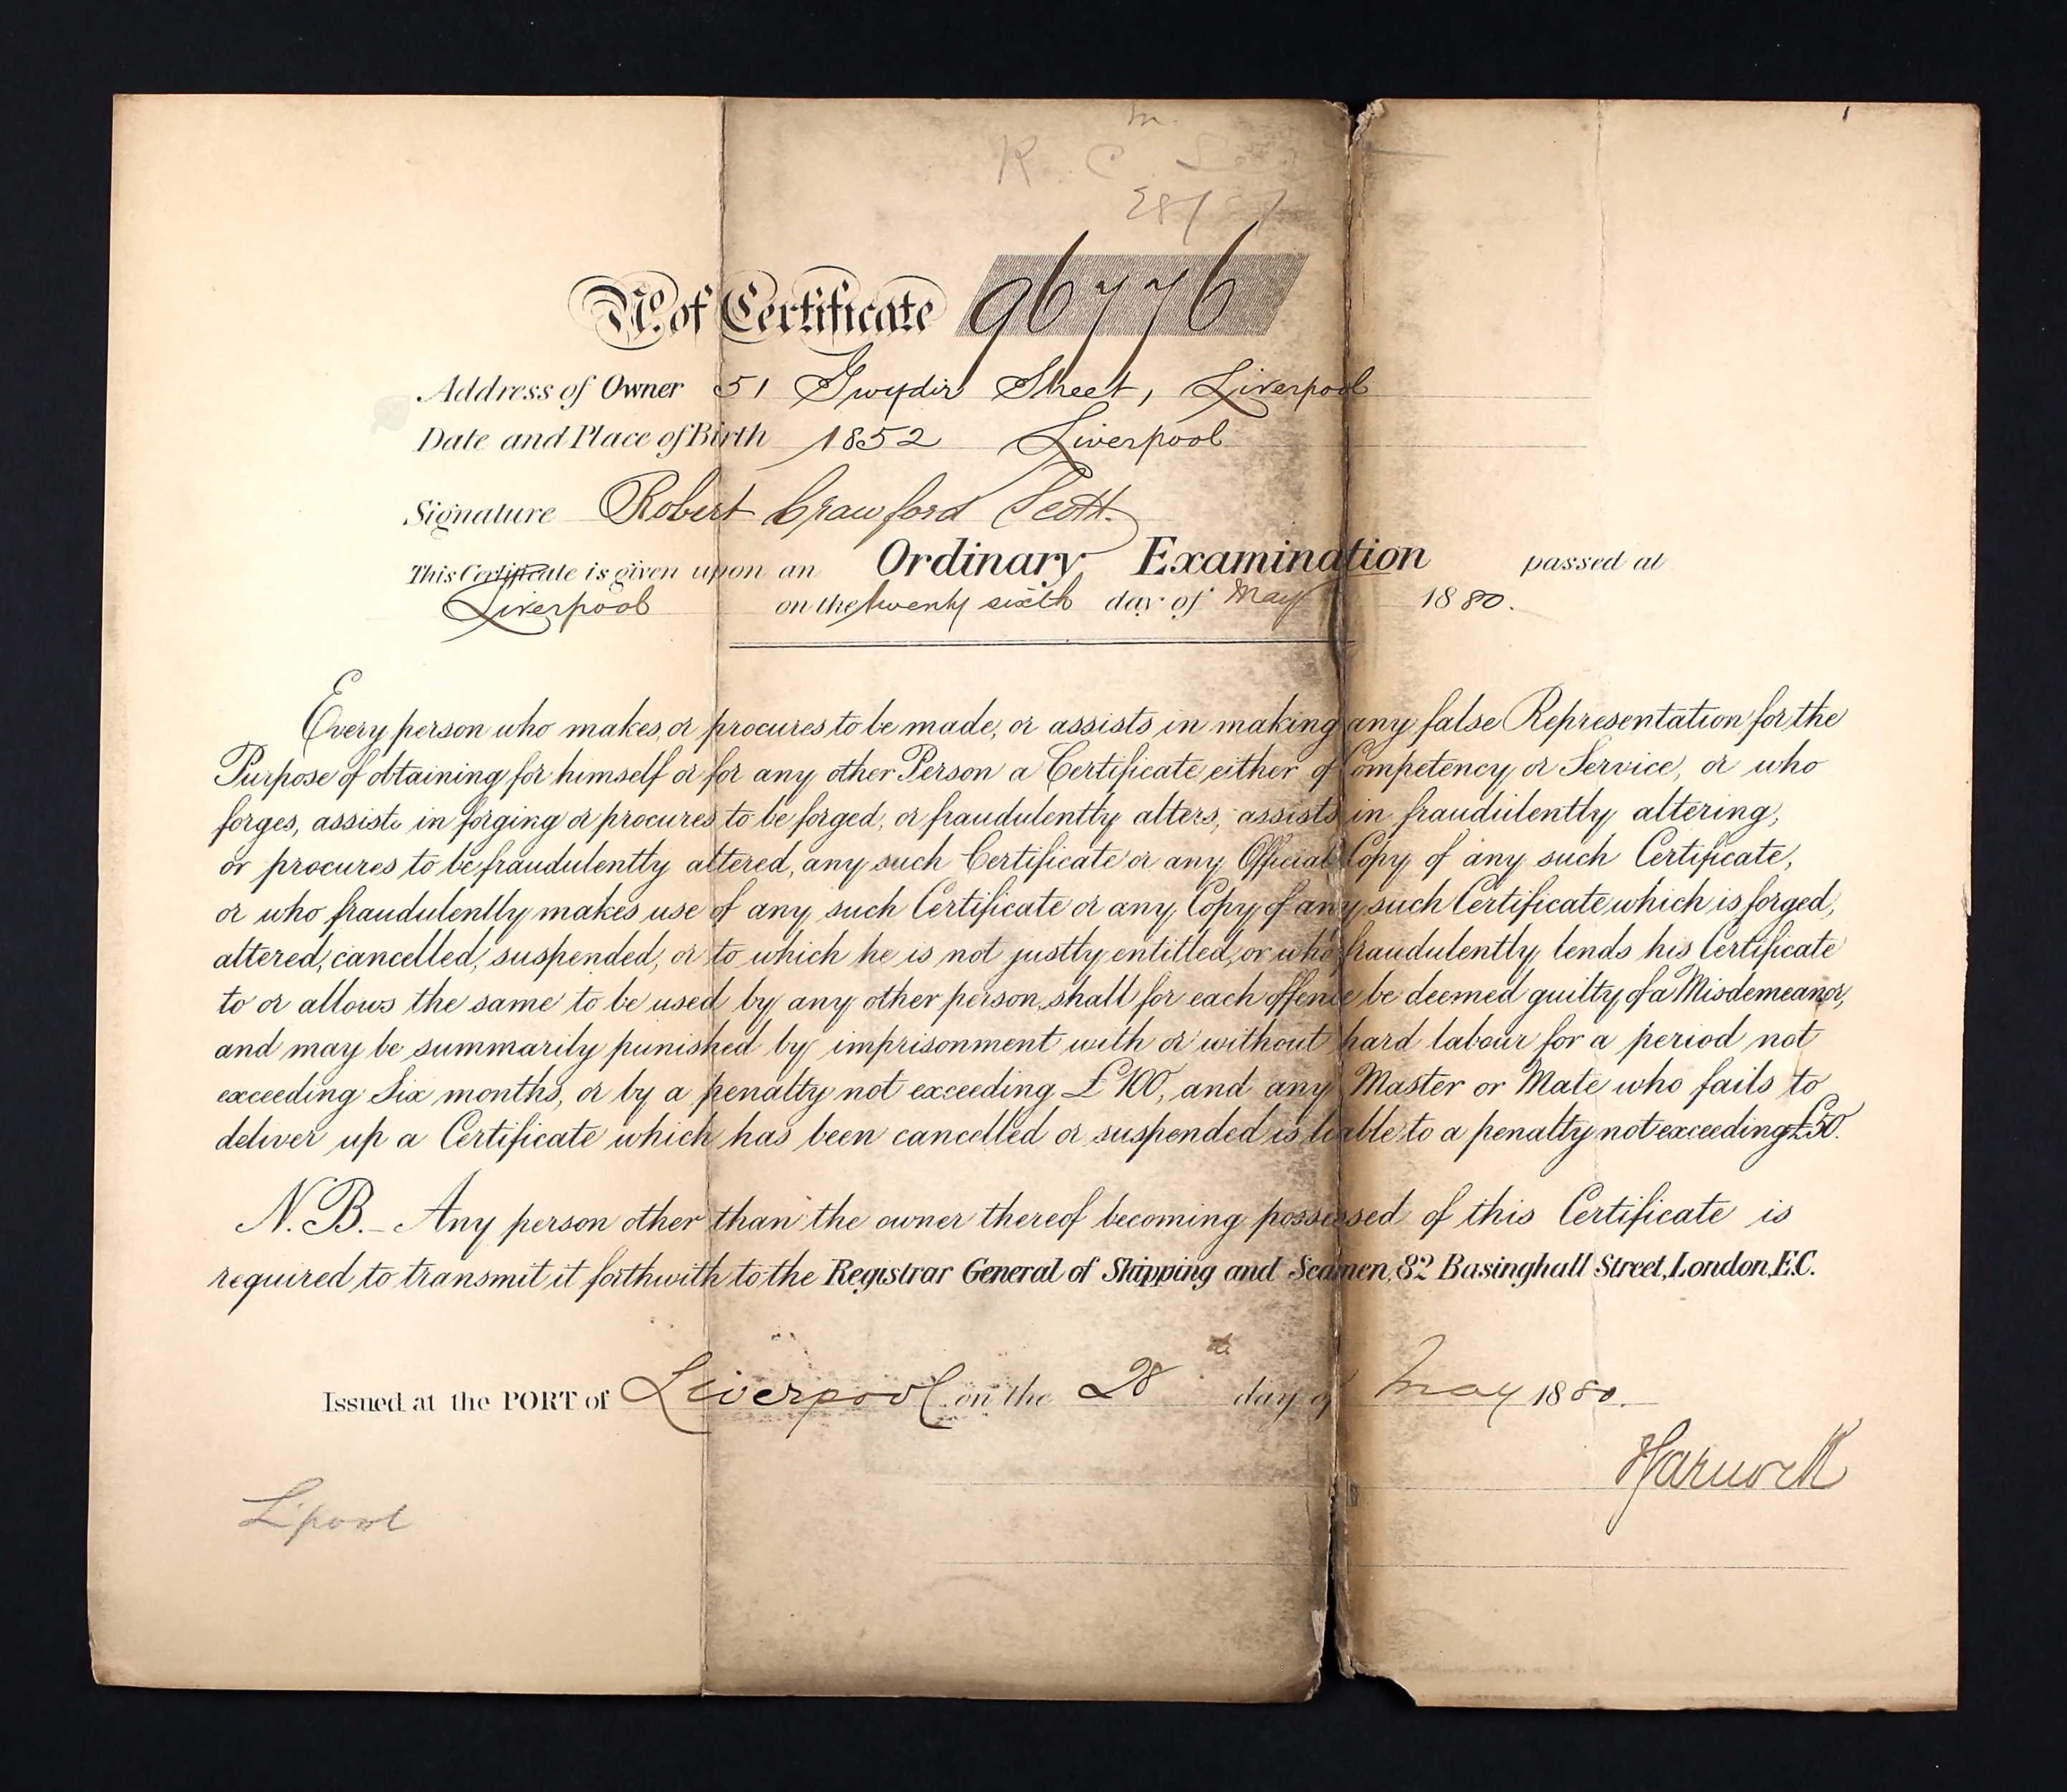 m.
R. C.
No. of Certificate 96776
Address of Owner 51 Gwydir Street, Liverpool
Date and Place of Birth 1852 Liverpool
Signature Robert Crawford Scott.
This Certificate is given upon an Ordinary Examination passed at
Liverpool on the twenty sixth day of May 1880.
Every person who makes, or procures to be made, or assists in making any false Representation for the
Purpose of obtaining for himself or for any other Person a Certificate either of Competency or Service, or who
forges, assists in forging or procures to be forged, or fraudulently alters, assists in fraudulently altering,
or procures to be fraudulently altered, any such Certificate or any Official Copy of any such Certificate,
or who fraudulently makes use of any such Certificate or any Copy of any such Certificate which is forged,
altered, cancelled, suspended, or to which he is not justly entitled, or who fraudulently lends his Certificate
to or allows the same to be used by any other person, shall for each offence be deemed guilty of a Misdemeanor,
and may be summarily punished by imprisonment with or without hard labour for a period not
exceeding Six months, or by a penalty not exceeding £100, and any Master or Mate who fails to
deliver up a Certificate which has been cancelled or suspended is liable to a penalty not exceeding £50.
N.B.- Any person other than the owner thereof becoming possessed of this Certificate is
required to transmit it forthwith to the Registrar General of Shipping and Seamen, 82 Basinghall Street, London, E.C.
Issued at the PORT of Liverpool on the 28th day of May 1880.
L'pool